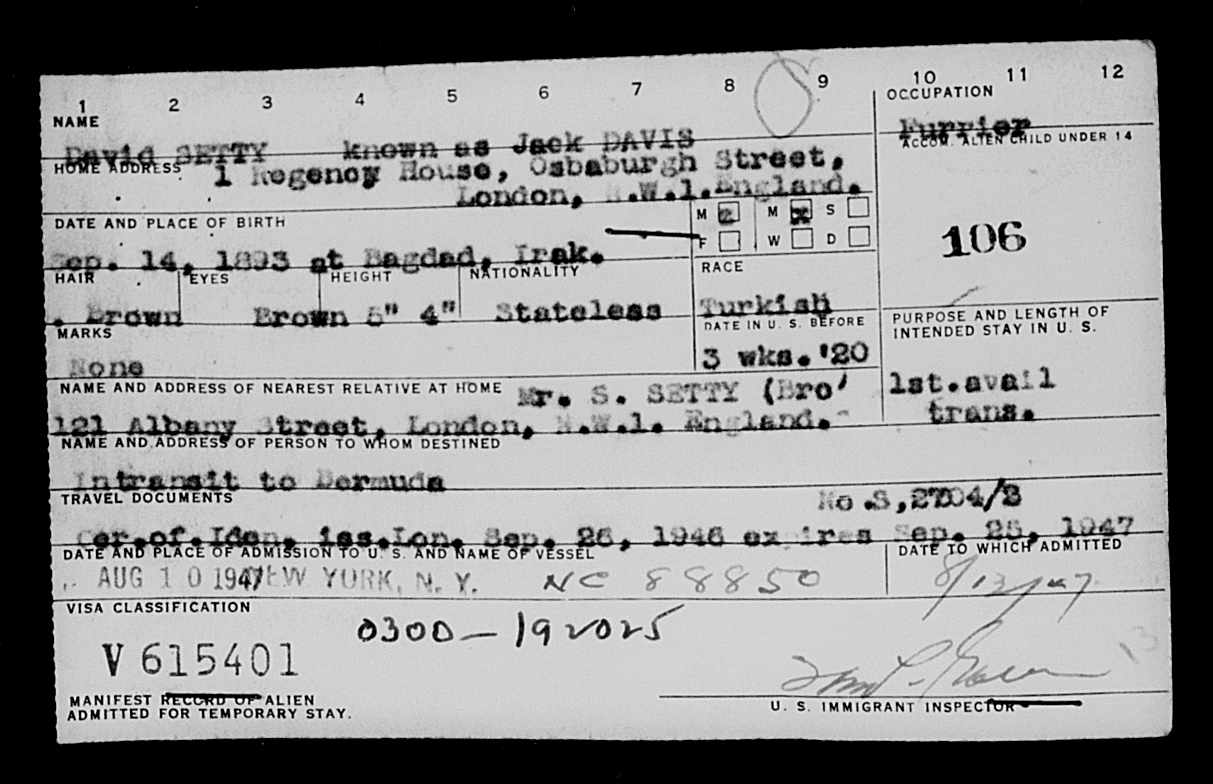 1 2 3 4 5 6 7 8 9 10 11 12
NAME
OCCUPATION
David SETTY known as Jack DAVIS
Furrier
HOME ADDRESS
1 Regency House, Osbaburgh Street,
London, N.W.1.England.
ACCOM. ALIEN CHILD UNDER 14
106
DATE AND PLACE OF BIRTH
M M X S
F W D
Sep. 14, 1893 at Bagdad, Irak.
HAIR EYES HEIGHT NATIONALITY RACE
Brown Brown 5" 4" Stateless Turkish
MARKS
DATE IN U. S. BEFORE
PURPOSE AND LENGTH OF
INTENDED STAY IN U. S.
None
3 wks. '20
NAME AND ADDRESS OF NEAREST RELATIVE AT HOME Mr. S. SETTY (Bro'
1st.avail
trans.
121 Albany Street, London, N.W.1. England.
NAME AND ADDRESS OF PERSON TO WHOM DESTINED
Intransit to Bermuda
TRAVEL DOCUMENTS
No .S,2704/
Cer.of.Iden. iss.Lon. Sep. 26, 1946 expires Sep. 25, 1947
DATE AND PLACE OF ADMISSION TO U. S. AND NAME OF VESSEL
DATE TO WHICH ADMITTED
AUG 10 1947 NEW YORK, N. Y. NC 88850
8/12/47
VISA CLASSIFICATION
0300-192025
V 615401
MANIFEST RECORD OF ALIEN
ADMITTED FOR TEMPORARY STAY.
U. S. IMMIGRANT INSPECTOR